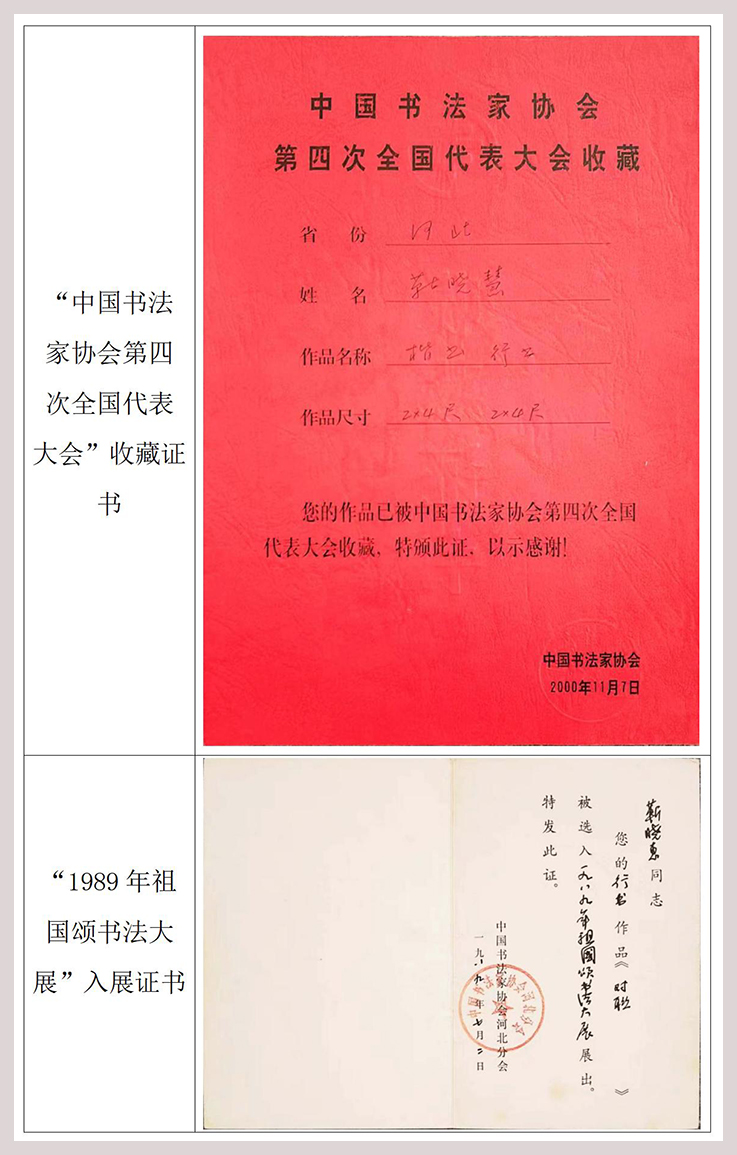 “中国书法
家协会第四
次全国代表
大会”收藏证
书
中国书法家协会
第四次全国代表大会收藏
省 份 河北
姓 名 靳晓慧
作品名称 楷书 行书
作品尺寸 2×4尺 2×4尺
您的作品已被中国书法家协会第四次全国
代表大会收藏，特颁此证，以示感谢！
中国书法家协会
2000年11月7日
“1989 年祖
国颂书法大
展”入展证书
靳晓惠同志
您的行书作品《对联》
被选入一九八九年祖國颂书法大展展出。
特发此证。
中国书法家协会河北分会
一九八九年七月二日
中国书法家协会河北分会